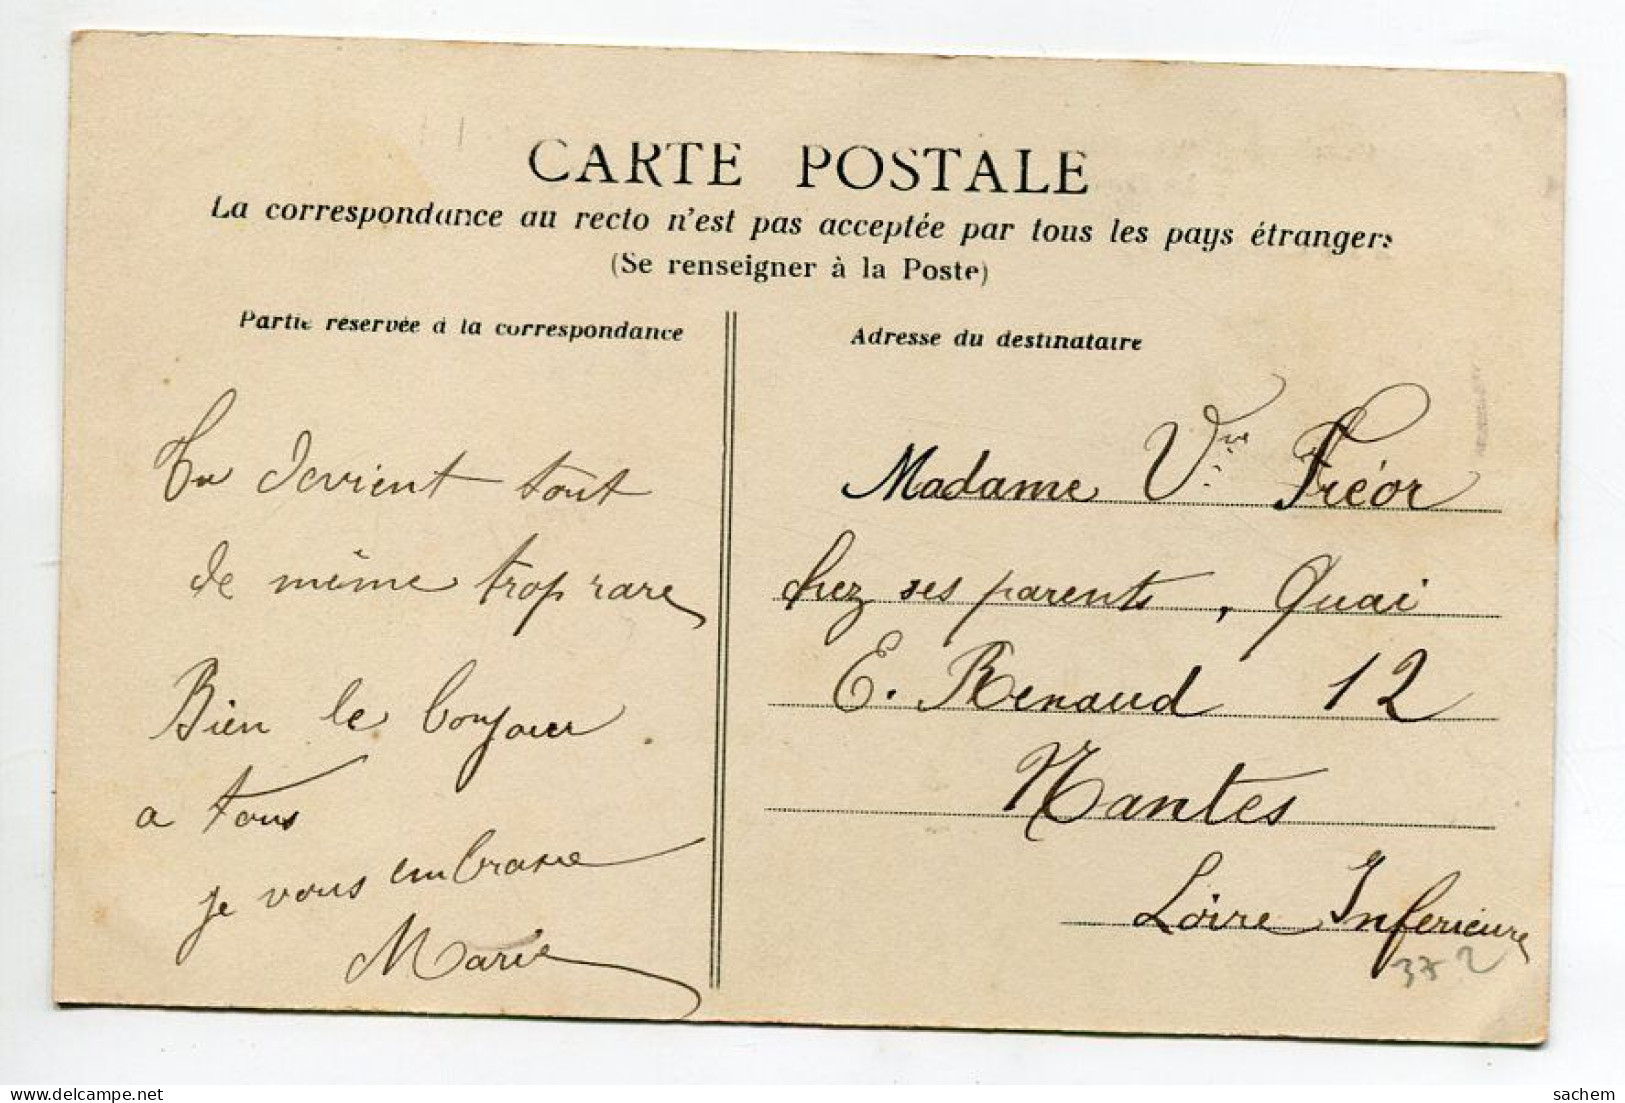 CARTE POSTALE
La correspondance au recto n'est pas acceptée par tous les pays étrangers
(Se renseigner à la Poste)
Partie réservée à la correspondance
Tu devient tout
de même trop rare
Bien le bonjour
a tous
je vous embrasse
Marie
Adresse du destinataire
Madame Vve Fréor
chez ses parents, Quai
E. Renaud 12
Nantes
Loire Inferieure
372
delcampe.net
sachem